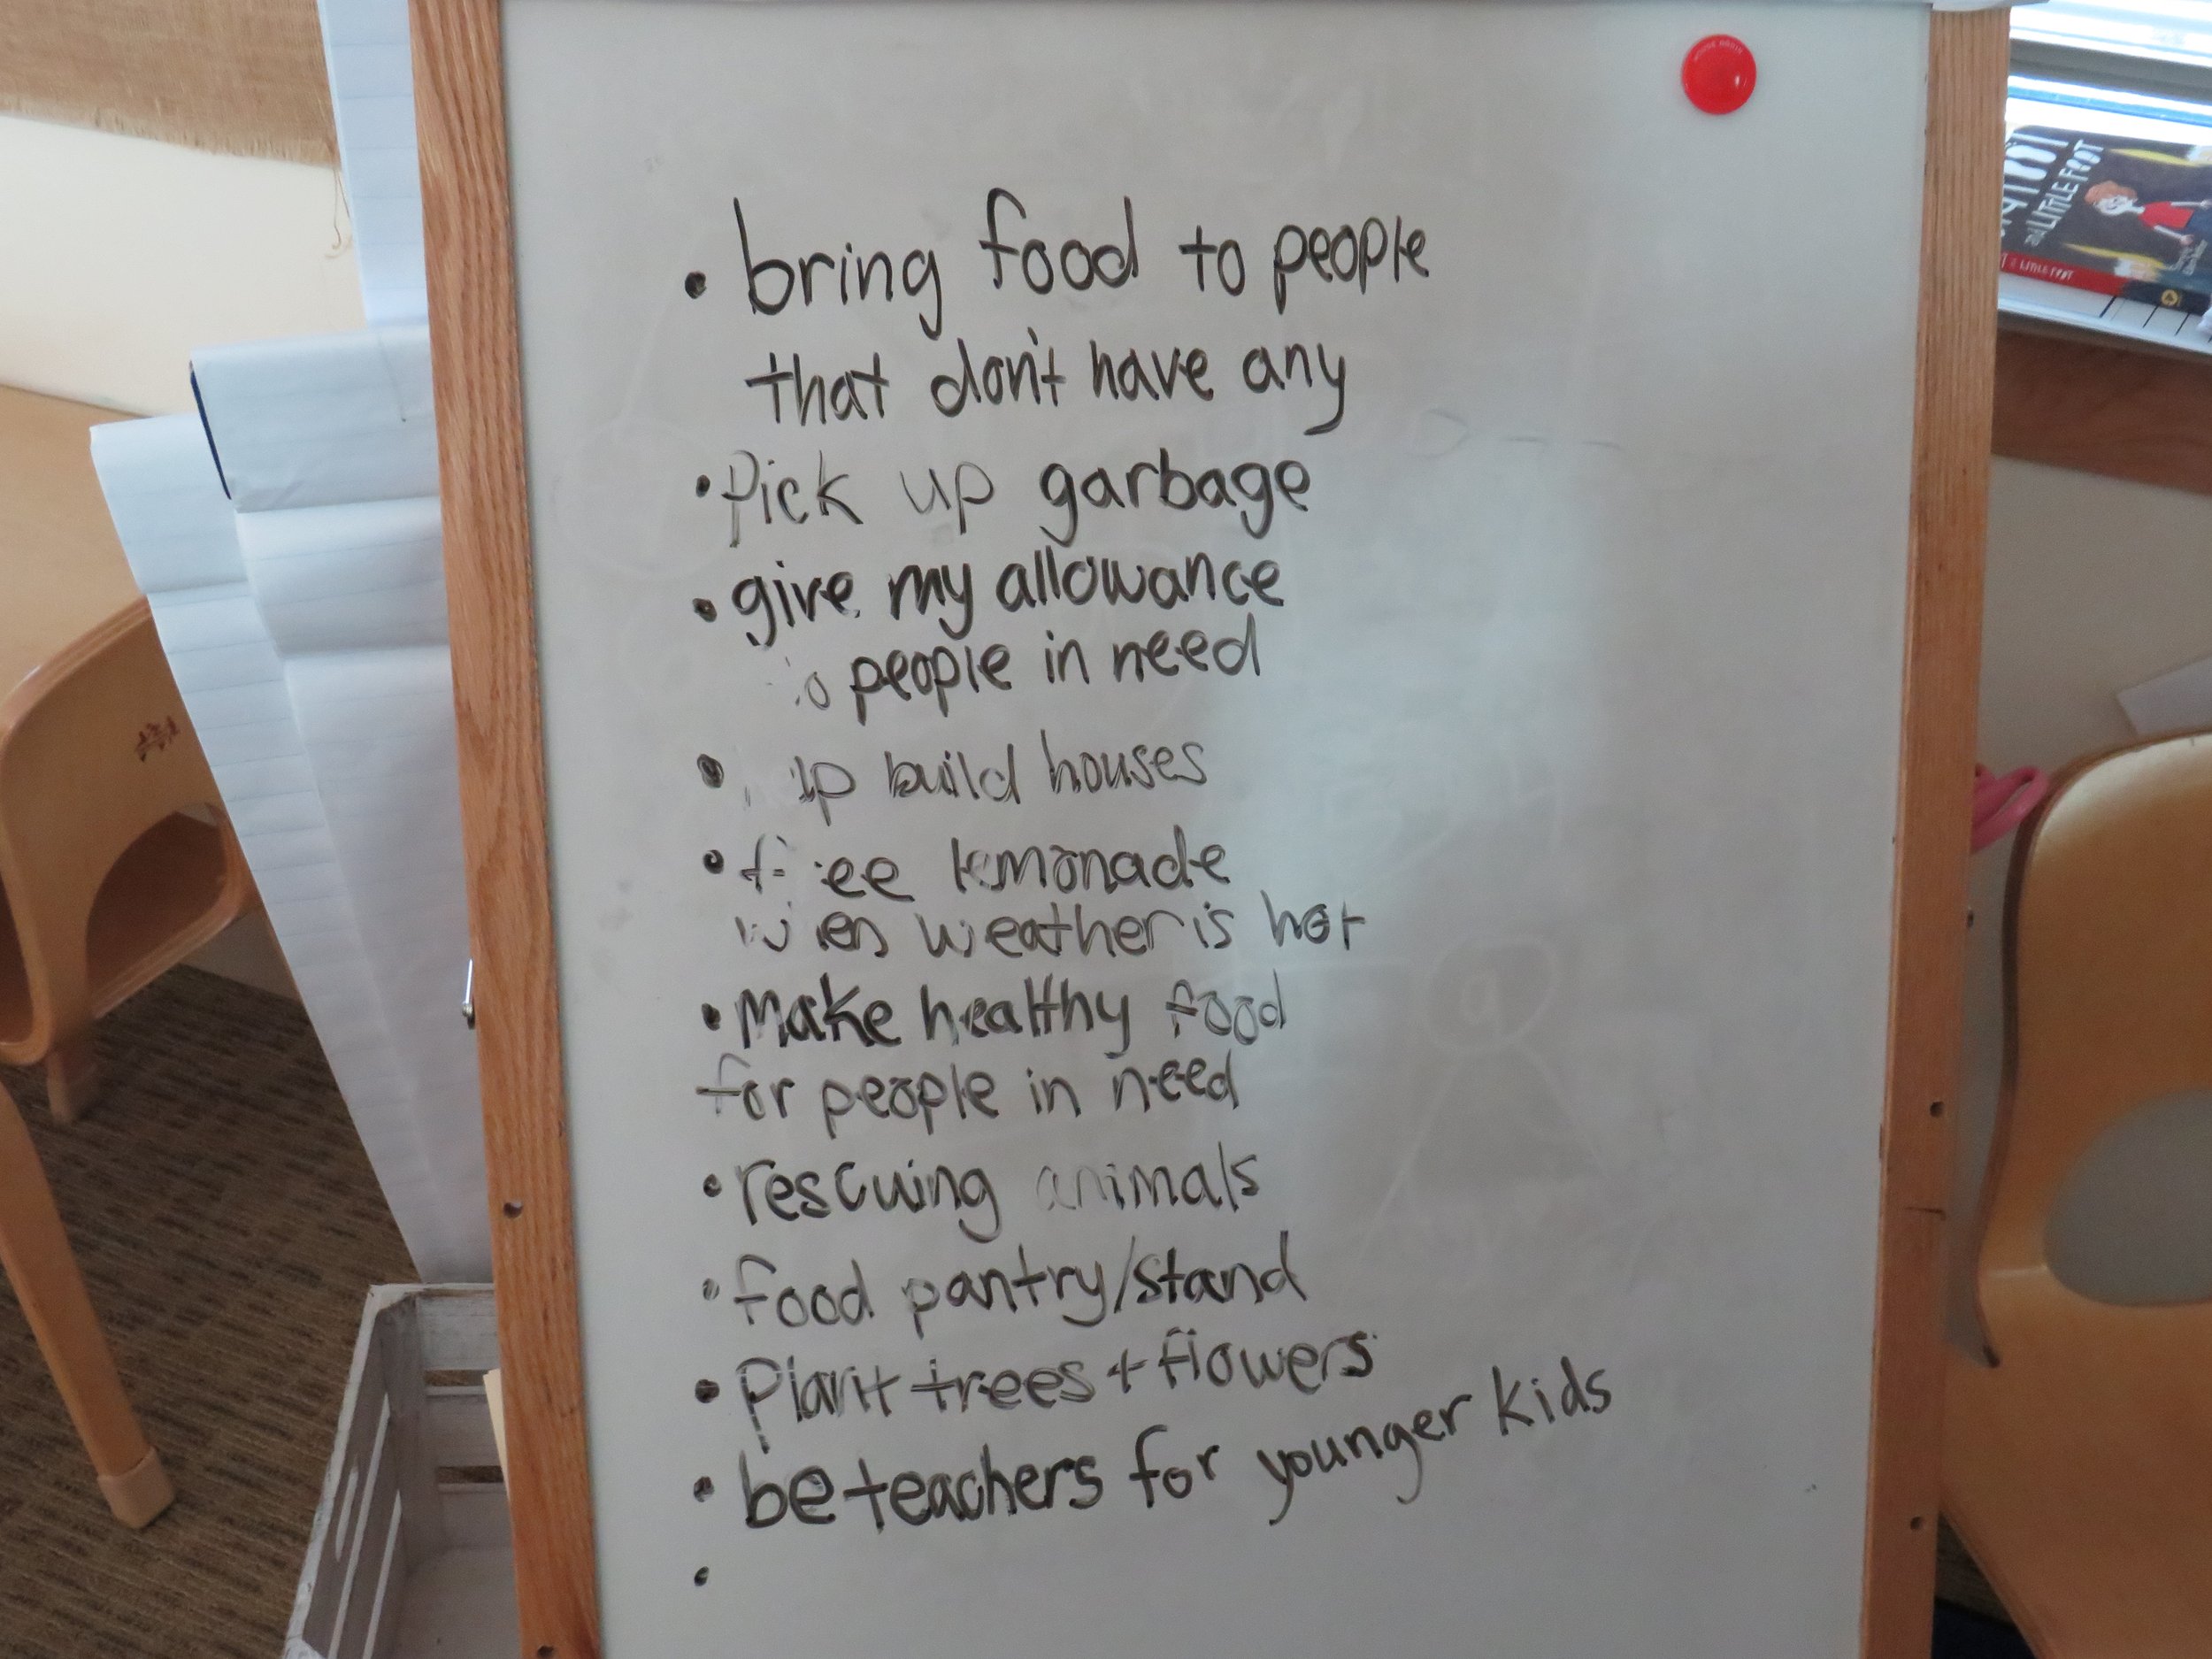 • bring food to people
that don't have any
• Pick up garbage
• give my allowance
people in need
• build houses
• free lemonade
when weather is hot
• Make healthy food
for people in need
• rescuing animals
• food pantry/stand
• Plant trees + flowers
• be teachers for younger kids
•
and LITTLE FOOT
LITTLE FOOT